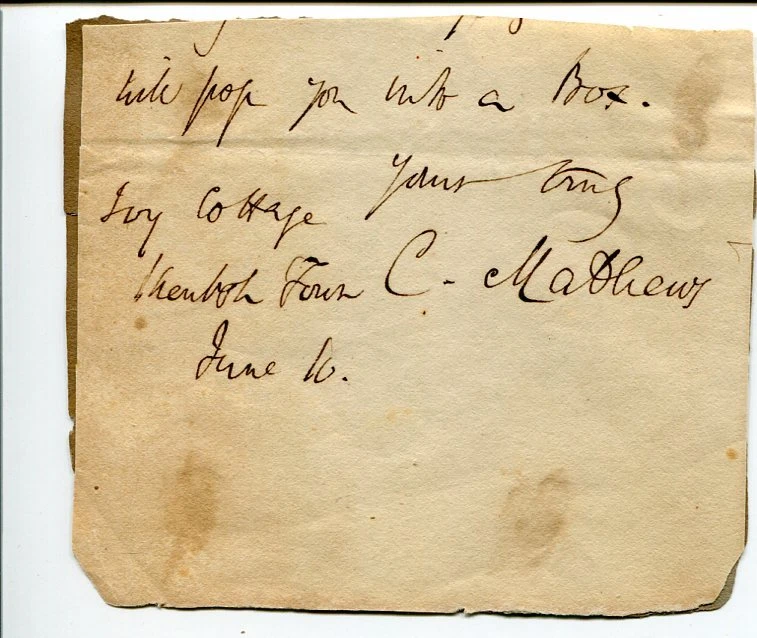 will pop you into a Box.
Yours truly
Ivy Cottage
Kentish Town C. Mathews
June 10.